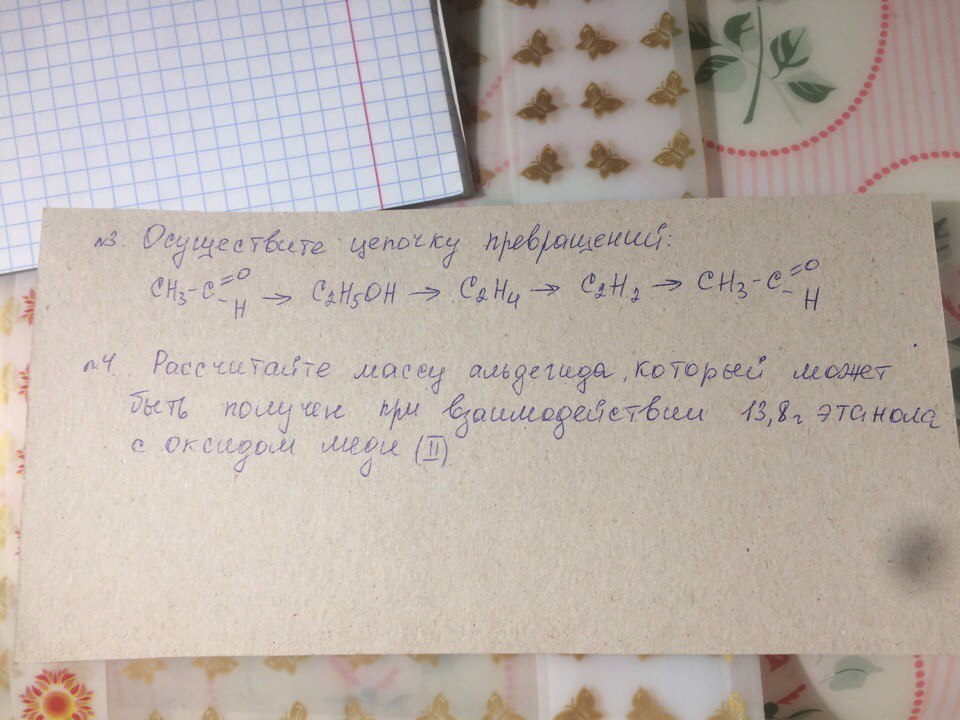 №3. Осуществите цепочку превращений:
CH₃-C=O-H → C₂H₅OH → C₂H₄ → C₂H₂ → CH₃-C=O-H
№4. Рассчитайте массу альдегида, который может
быть получен при взаимодействии 13,8г этанола
с оксидом меди (II)